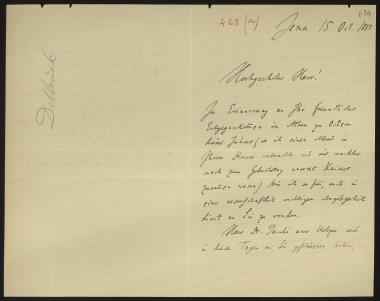 694
468 (a)
Jena 15 Oct. 1881
Delbrück
Hochgeehrter Herr!
In Erinnerung an Ihr freundliches
Entgegenkommen in Athen zu Ostern
dieses Jahres (wo ich einen Abend in
Ihrem Hause verbrachte und wir nachher
noch zum Geburtstag unseres Kaisers
zusammen waren) bin ich so frei, mich in
einer wissenschaftlich wichtigen Angelegenheit
direct an Sie zu wenden.
Herr Dr. Pauli aus Uelzen wird
in diesen Tagen an Sie geschrieben haben,